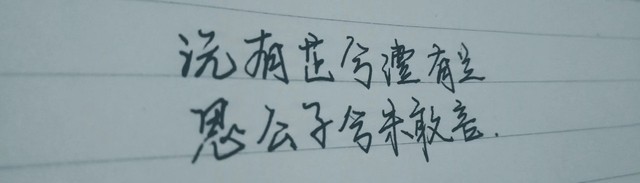 沅有芷兮澧有兰
思公子兮未敢言.